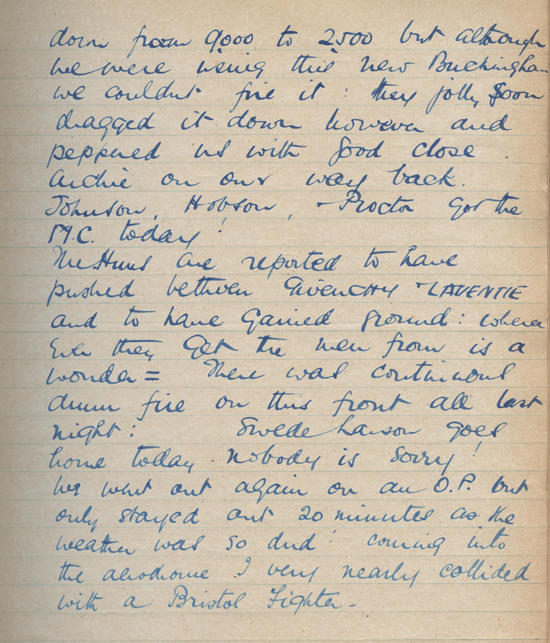 down from 9000 to 2500 but although
we were using this new Buckingham
we couldnt fire it : they jolly soon
dragged it down however and
peppered us with good close
archie on our way back.
Johnson, Hobson, - Proctor got the
M.C. today!
The Huns are reported to have
pushed between GIVENCHY + LAVENTIE
and to have gained ground : where
ever they get the men from is a
wonder = There was continuous
drum fire on this front all last
night : Swede Larson goes
home today. nobody is sorry!
We went out again on an O.P. but
only stayed out 20 minutes as the
weather was so dud! coming into
the aerodrome I very nearly collided
with a Bristol Fighter -